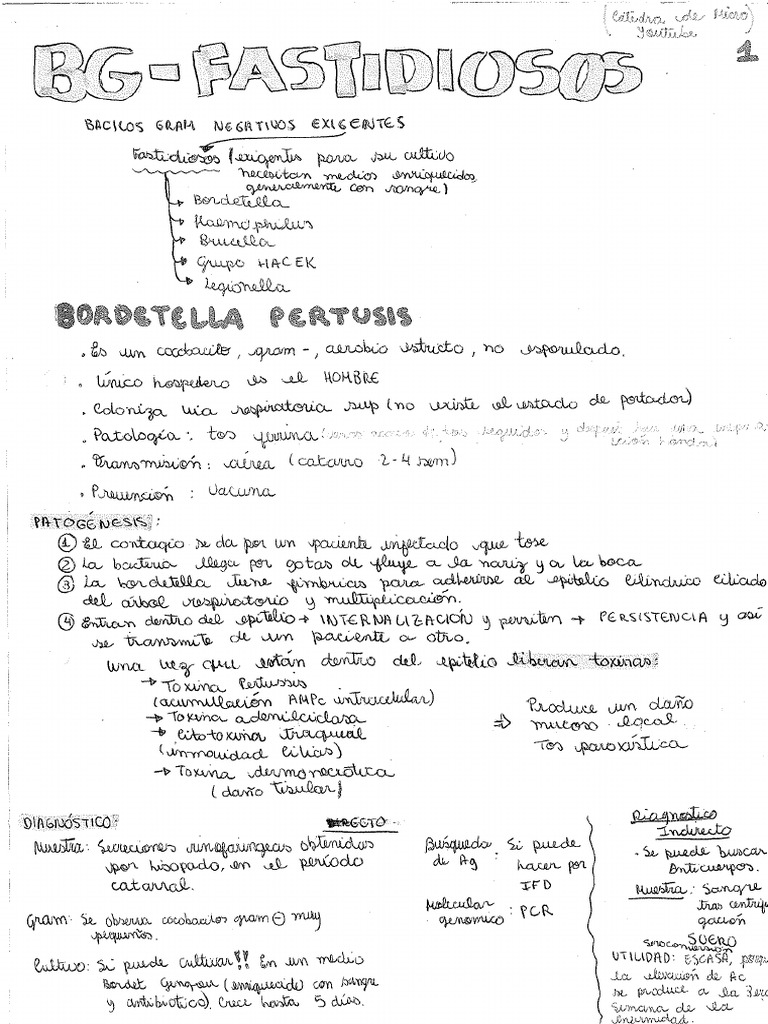 (Cátedra de Micro
Youtube)
1
BG-FASTIDIOSOS
BACILOS GRAM NEGATIVOS EXIGENTES
Fastidiosos (exigentes para su cultivo
necesitan medios enriquecidos,
generalmente con sangre)
Bordetella
Haemophilus
Brucella
Grupo HACEK
Legionella
BORDETELLA PERTUSIS
. Es un cocobacilo, gram -, aerobio estricto, no esporulado.
. Único hospedero es el HOMBRE
. Coloniza via respiratoria sup (no existe el estado de portador)
. Patología: tos ferina ( de tos seguidos y después hay una
. Transmisión: aérea (catarro 2-4 sem)
. Prevención: Vacuna
PATOGÉNESIS:
① El contagio se da por un paciente infectado que tose
② La bacteria llega por gotas de fluge a la nariz y a la boca
③ La bordetella tiene fimbrias para adherirse al epitelio cilíndrico ciliado
del árbol respiratorio y multiplicación.
④ Entran dentro del epitelio → INTERNALIZACIÓN y permiten → PERSISTENCIA y así
se transmite de un paciente a otro.
una vez que están dentro del epitelio liberan toxinas:
→ Toxina Pertussis
(acumulación AMPc intracelular)
→ Toxina adenilciclasa
→ Citotoxina traqueal
(inmovilidad cilias)
→ Toxina dermonecrótica
(daño tisular)
⇒ Produce un daño
mucoso local
Tos paroxística
DIAGNÓSTICO: DIRECTO
Muestra: Secreciones rinofaríngeas obtenidas
por hisopado, en el período
catarral.
Gram: Se observa cocobacilos gram ⊖ muy
pequeños.
Cultivo: Si puede cultivar!! En un medio
Bordet Gengou (enriquecido con sangre
y antibiotico). Crece hasta 5 días.
Búsqueda de Ag : Si puede
hacer por
IFD
Molecular
genomico : PCR
Diagnostico
Indirecto
. Se puede buscar
Anticuerpos.
Muestra: Sangre
tras centrifu
gación
SUERO
seroconversion
UTILIDAD: ESCASA, porque
la elevación de Ac
se produce a la 3era
semana de la
enfermedad.